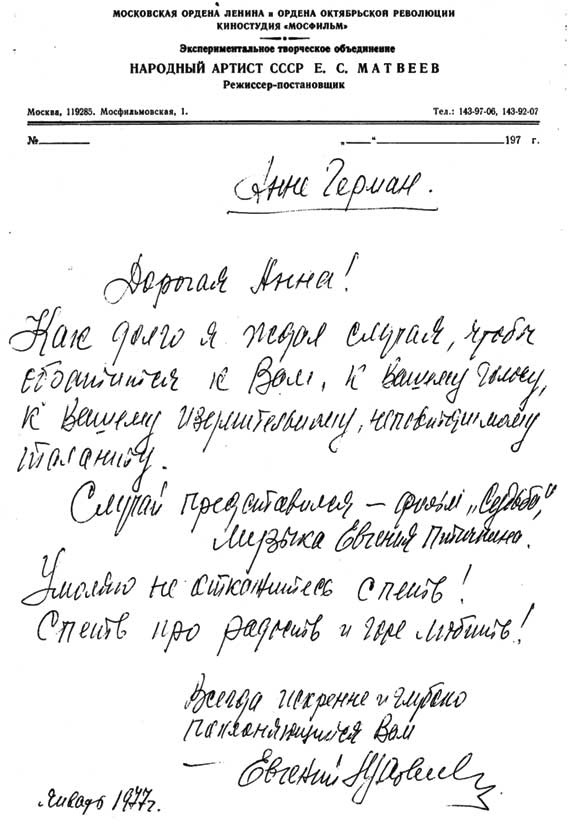 МОСКОВСКАЯ ОРДЕНА ЛЕНИНА и ОРДЕНА ОКТЯБРЬСКОЙ РЕВОЛЮЦИИ
КИНОСТУДИЯ «МОСФИЛЬМ»
Экспериментальное творческое объединение
НАРОДНЫЙ АРТИСТ СССР Е. С. МАТВЕЕВ
Режиссер-постановщик
Москва, 119285. Мосфильмовская, 1. Тел.: 143-97-06, 143-92-07
№ „ “ 197 г.
Анне Герман.
Дорогая Анна!
Как долго я ждал случая, чтобы
обратиться к Вам, к Вашему голосу,
к Вашему изумительному, неповторимому
таланту.
Случай представился – фильм „Судьба“,
музыка Евгения Птичкина.
Умоляю не откажитесь спеть!
Спеть про радость и горе любить!
Всегда искренне и глубоко
поклоняющийся Вам
— Евгений Матвеев
Январь 1977г.